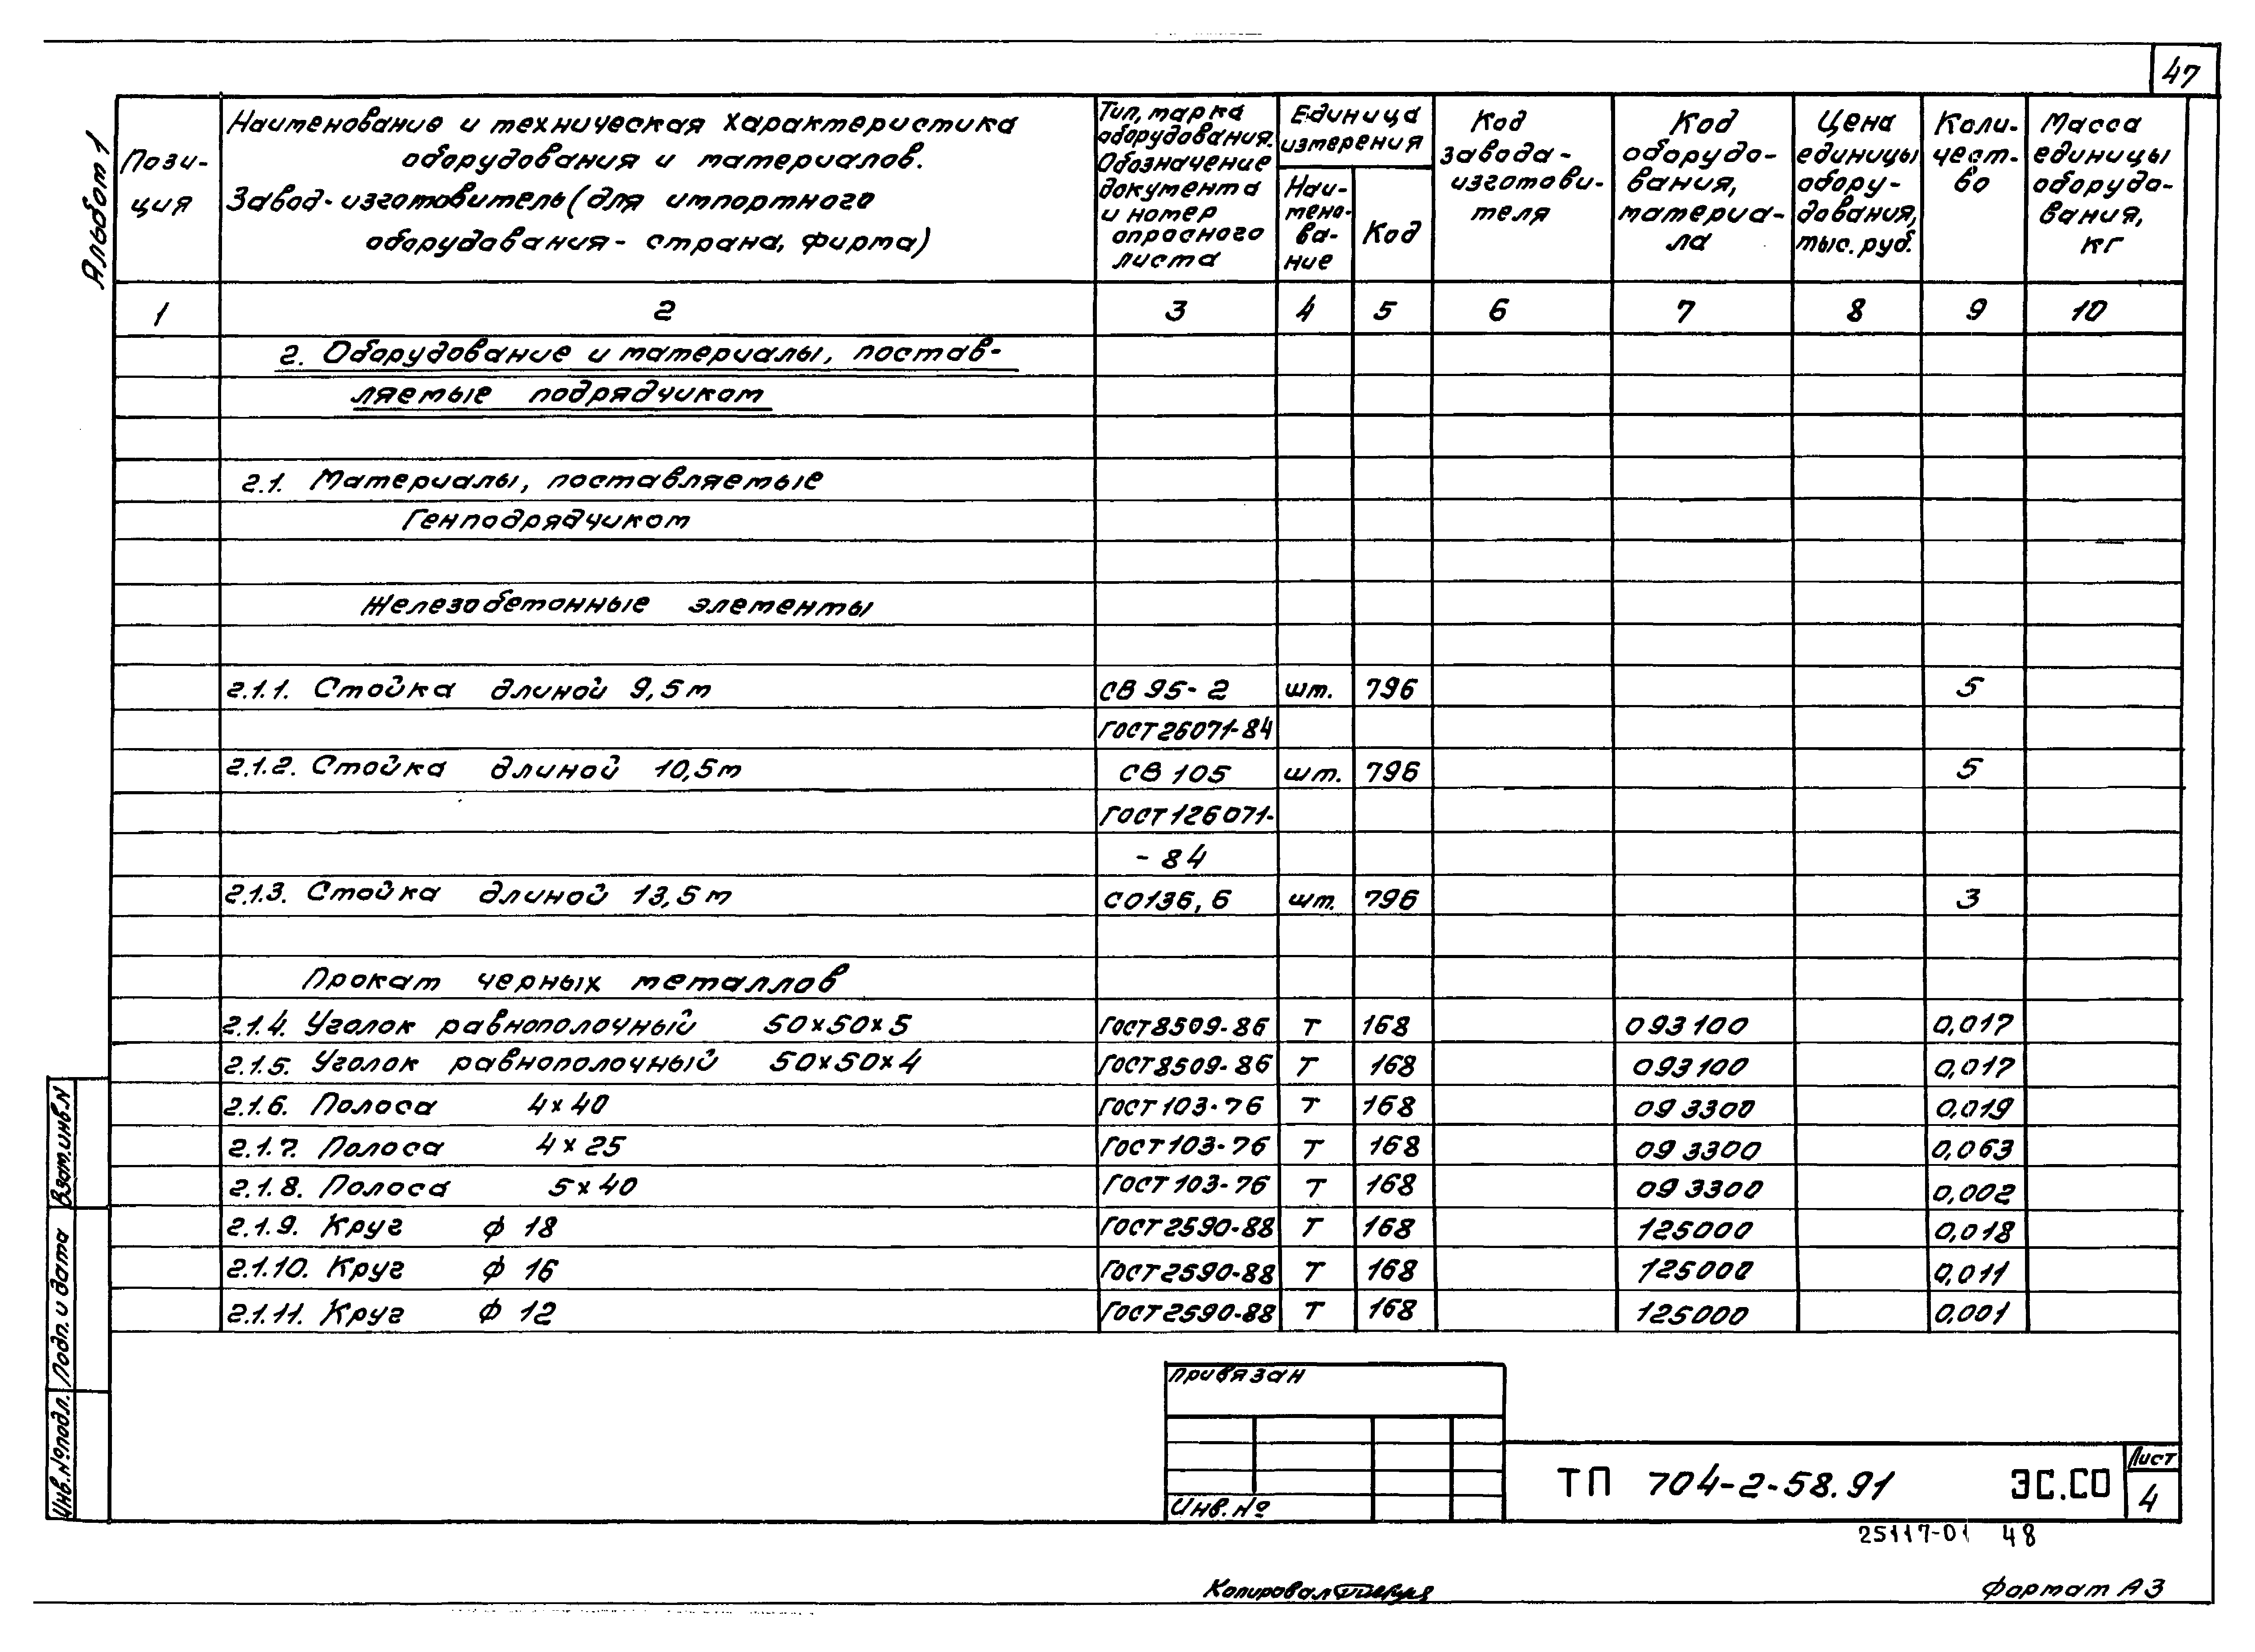 47
Альбом 1
Пози-
ция
Наименование и техническая характеристика
оборудования и материалов.
Завод-изготовитель (для импортного
оборудования - страна, фирма)
Тип, марка
оборудования.
Обозначение
документа
и номер
опросного
листа
Единица
измерения
Наи-
мено-
ва-
ние
Код
Код
завода-
изготови-
теля
Код
оборудо-
вания,
материа-
ла
Цена
единицы
обору-
дования,
тыс. руб.
Коли-
чест-
во
Масса
единицы
оборудо-
вания,
кг
1 2 3 4 5 6 7 8 9 10
2. Оборудование и материалы, постав-
ляемые подрядчиком
2.1. Материалы, поставляемые
Генподрядчиком
Железобетонные элементы
2.1.1. Стойка длиной 9,5м СВ 95-2 шт. 796 5
ГОСТ 26071-84
2.1.2. Стойка длиной 10,5м СВ 105 шт. 796 5
ГОСТ 126071-
-84
2.1.3. Стойка длиной 13,5м СО136,6 шт. 796 3
Прокат черных металлов
2.1.4. Уголок равнополочный 50×50×5 ГОСТ 8509-86 Т 168 093100 0,017
2.1.5. Уголок равнополочный 50×50×4 ГОСТ 8509-86 Т 168 093100 0,017
2.1.6. Полоса 4×40 ГОСТ 103-76 Т 168 093300 0,019
2.1.7. Полоса 4×25 ГОСТ 103-76 Т 168 093300 0,063
2.1.8. Полоса 5×40 ГОСТ 103-76 Т 168 093300 0,002
2.1.9. Круг ф 18 ГОСТ 2590-88 Т 168 125000 0,018
2.1.10. Круг ф 16 ГОСТ 2590-88 Т 168 125000 0,011
2.1.11. Круг ф 12 ГОСТ 2590-88 Т 168 125000 0,001
Взам. инв. N
Подп. и дата
Инв. № подл.
привязан
Инв. №
ТП 704-2-58.91 ЭС.СО
Лист
4
25117-01 48
Копировал
Формат А3